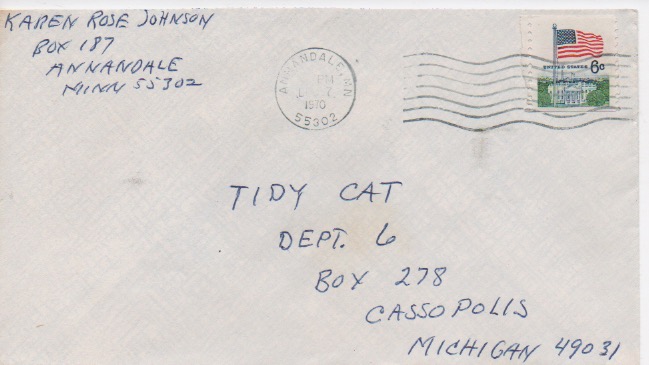 KAREN ROSE JOHNSON
BOX 187
ANNANDALE
MINN 55302
ANNANDALE, MN
PM
1970
55302
UNITED STATES 6c
TIDY CAT
DEPT. 6
BOX 278
CASSOPOLIS
MICHIGAN 49031